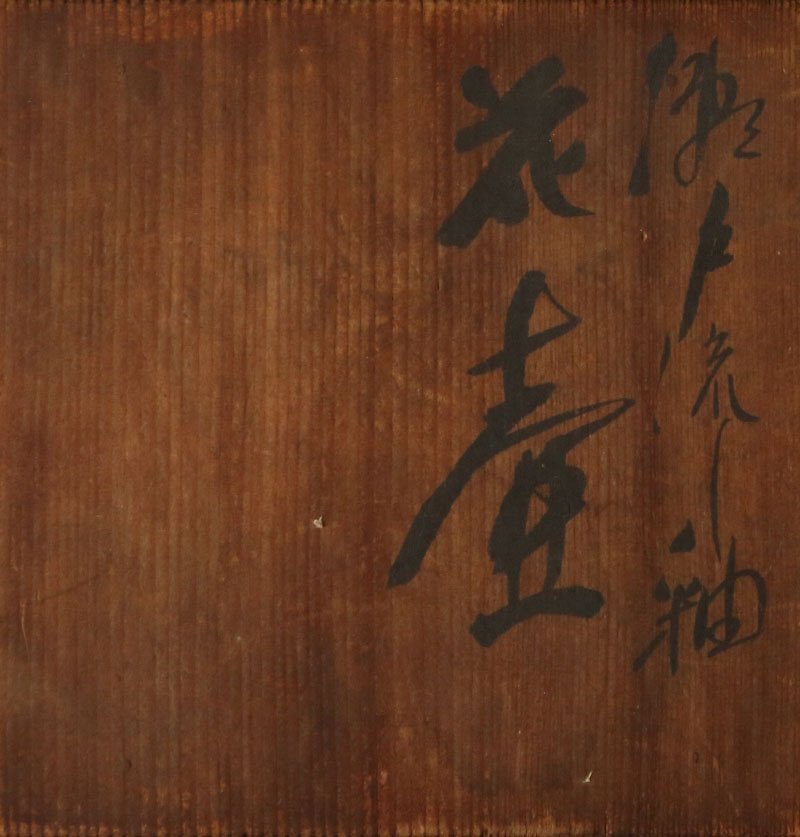 瀬戸流し釉
花壷